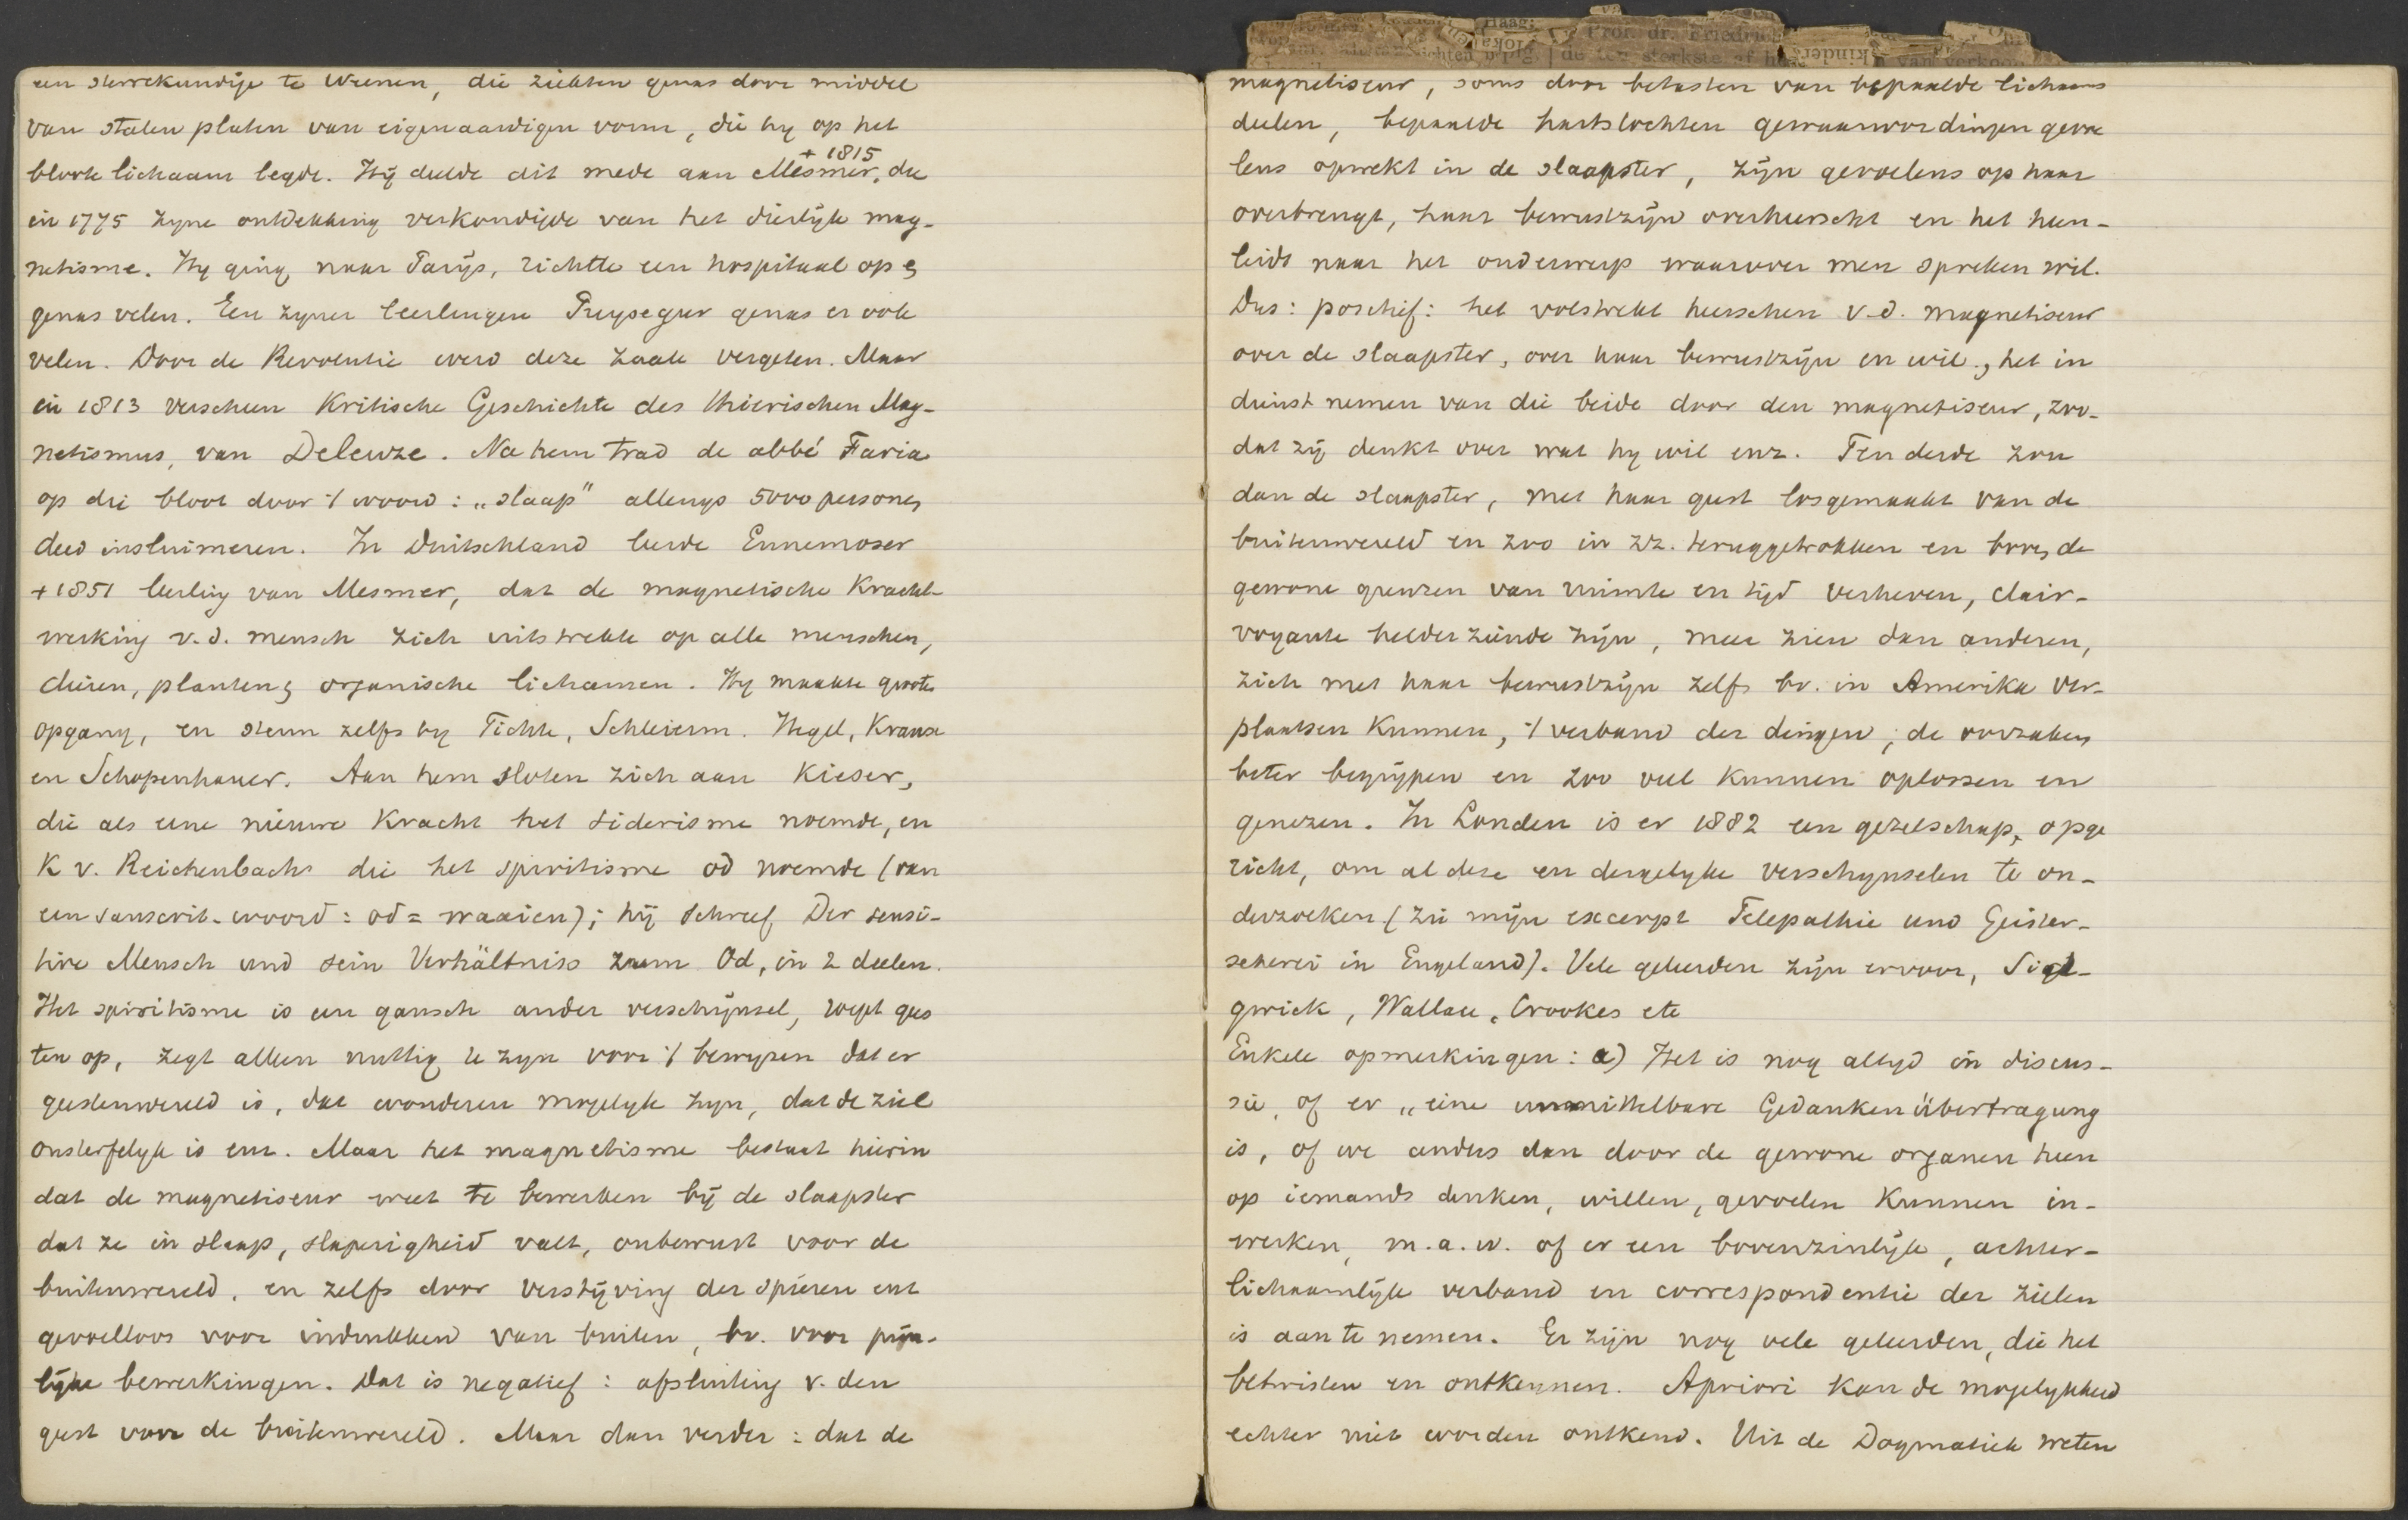 een sterrekundige te Weenen, die ziekten genas door middel
van stalen platen van eigenaardigen vorm, die hy op het
bloote lichaam legde. Hij deelde dit mede aan Mesmer, die
+ 1815
in 1775 zyne ontdekking verkondigde van het dierlijk mag-
netisme. Hy ging naar Parijs, richtte een hospitaal op en
genas velen. Een zyner leerlingen Puysegur genas er ook
velen. Door de Revolutie werd deze zaak vergeten. Maar
in 1813 verscheen Kritische Geschichte des thierischen Mag-
netismus, van Deleuze. Na hem trad de abbé Faria
op die bloot door 't woord: "slaap" allengs 5000 personen
deed insluimeren. In Duitschland leerde Ennemoser
+ 1851 leerling van Mesmer, dat de magnetische Kracht-
werking v.d. mensch zich uitstrekte op alle menschen,
dieren, planten, organische lichamen. Hy maakte grooten
opgang, en steun zelfs by Fichte, Schleierm. Hegel, Krause
en Schopenhauer. Aan hem sloten zich aan Kieser,
die als eene nieuwe Kracht het siderisme noemde, en
K v. Reichenbach die het spiritisme od noemde (van
een sanscrit-woord: od = waaien); hij schreef Der sensi-
tive Mensch und sein Verhältniss zum Od, in 2 deelen.
Het spiritisme is een gansch ander verschijnsel, roept gees
ten op, zegt alleen nuttig te zyn voor 't bewyzen dat er
geestenwereld is, dat wonderen mogelyk zyn, dat de ziel
onsterfelyk is enz. Maar het magnetisme bestaat hierin
dat de magnetiseur weet te bewerken bij de slaapster
dat ze in slaap, slaperigheid valt, onbewust voor de
buitenwereld, en zelfs door verstijving der spieren enz
gevoelloos voor indrukken van buiten, bv. voor pijn-
lijke bewerkingen. Dat is negatief: afsluiting v. den
geest voor de buitenwereld. Maar dan verder: dat de
magnetiseur, soms door betasten van bepaalde lichaams
deelen, bepaalde hartstochten gewaarwordingen gevoe
lens opwekt in de slaapster, zijn gevoelens op haar
overbrengt, haar bewustzijn overheerscht en het heen-
leidt naar het onderwerp waarover men spreken wil.
Dus: positief: het volstrekt heerschen v.d. magnetiseur
over de slaapster, over haar bewustzijn en wil, het in
dienst nemen van die beide door den magnetiseur, zoo-
dat zij denkt over wat hy wil enz. Ten derde zou
dan de slaapster, met haar geest losgemaakt van de
buitenwereld en zoo in zz. teruggetrokken en boven de
gewone grenzen van ruimte en tijd verheven, clair-
voyante helderziende zijn, meer zien dan anderen,
zich met haar bewustzijn zelfs bv. in Amerika ver-
plaatsen kunnen, 't verband der dingen, de oorzaken
beter begrijpen en zoo veel kunnen oplossen en
genezen. In Londen is er 1882 een gezelschap, opge
richt, om al deze en dergelyke verschynselen te on-
derzoeken (zie mijn excerpt Telepathie und Geister-
seherei in England). Vele geleerden zijn ervoor, Sid-
gwick, Wallace, Crookes etc
Enkele opmerkingen: a) Het is nog altyd in discus-
sie, of er "eine unmittelbare Gedankenübertragung
is, of we anders dan door de gewone organen heen
op iemands denken, willen, gevoelen kunnen in-
werken, m.a.w. of er een bovenzinlijk, achter-
lichaamlijk verband en correspondentie der zielen
is aan te nemen. Er zijn nog vele geleerden, die het
betwisten en ontkennen. Apriori kan de mogelykheid
echter niet worden ontkend. Uit de Dogmatiek weten